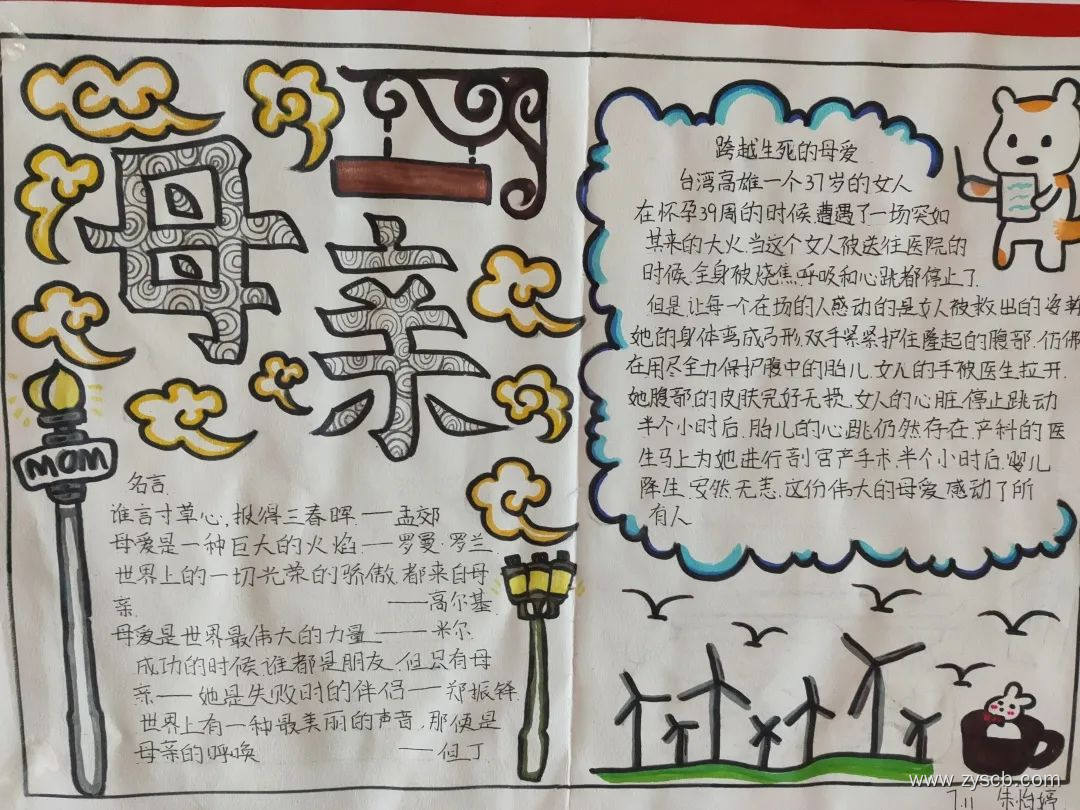 母亲
MOM
名言
谁言寸草心,报得三春晖.——孟郊
母爱是一种巨大的火焰.——罗曼·罗兰
世界上的一切光荣的骄傲,都来自母
亲. ——高尔基.
母爱是世界最伟大的力量——米尔.
成功的时候,谁都是朋友.但只有母
亲——她是失败时的伴侣——郑振铎.
世界上有一种最美丽的声音,那便是
母亲的呼唤 ——但丁
跨越生死的母爱
台湾高雄一个37岁的女人
在怀孕39周的时候,遭遇了一场突如
其来的大火.当这个女人被送往医院的
时候,全身被烧焦,呼吸和心跳都停止了.
但是让每一个在场的人感动的是女人被救出的姿势
她的身体弯成弓形,双手紧紧护住隆起的腹部.仿佛
在用尽全力保护腹中的胎儿.女人的手被医生拉开.
她腹部的皮肤完好无损.女人的心脏停止跳动
半个小时后.胎儿的心跳仍然存在.产科的医
生马上为她进行剖宫产手术.半个小时后.婴儿
降生.安然无恙.这份伟大的母爱.感动了所
有人
www.zyscb.com